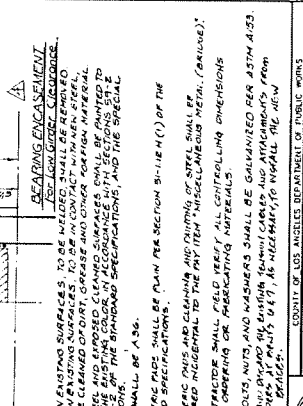 BEARING ENCASEMENT
For Low Girder Clearance
EXISTING SURFACES, TO BE WELDED, SHALL BE REMOVED
EXISTING SURFACES, TO BE IN CONTACT WITH NEW STEEL,
CLEANED OF DIRT, GREASE AND OTHER FOREIGN MATERIAL
EEL AND EXPOSED CLEANED SURFACES SHALL BE PAINTED TO
THE EXISTING COLOR, IN ACCORDANCE WITH SECTIONS 59-2
OF THE STANDARD SPECIFICATIONS, AND THE SPECIAL
ONS.
HALL BE A 36.
PADS SHALL BE PLAIN PER SECTION 51-1.12 H (1) OF THE
D SPECIFICATIONS.
ERIC PADS AND CLEANING AND PAINTING OF STEEL SHALL BE
ED INCIDENTAL TO THE PAY ITEM "MISCELLANEOUS METAL (BRIDGE)".
TRACTOR SHALL FIELD VERIFY ALL CONTROLLING DIMENSIONS
ORDERING OR FABRICATING MATERIALS.
OLTS, NUTS, AND WASHERS SHALL BE GALVANIZED PER ASTM A153.
EXISTING CABLES AND ATTACHMENTS FROM
AS NECESSARY, TO INSTALL THE NEW
COUNTY OF LOS ANGELES DEPARTMENT OF PUBLIC WORKS